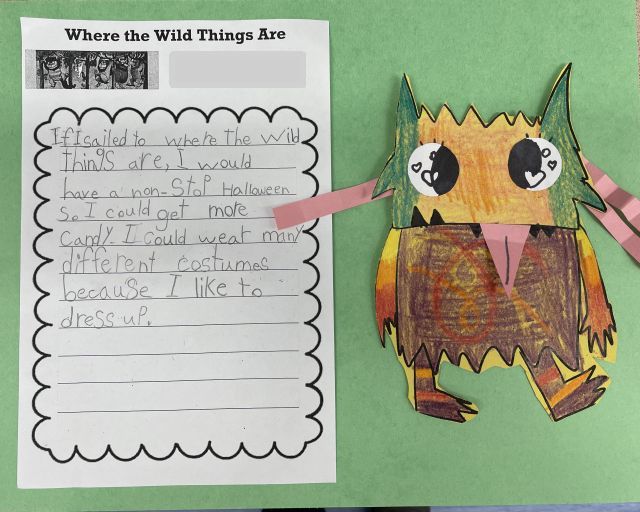 Where the Wild Things Are
If I sailed to where The Wild
Things are, I would
have a non-Stop Halloween
So I could get more
Candy. I could wear many
different costumes
because I like to
dress-up.